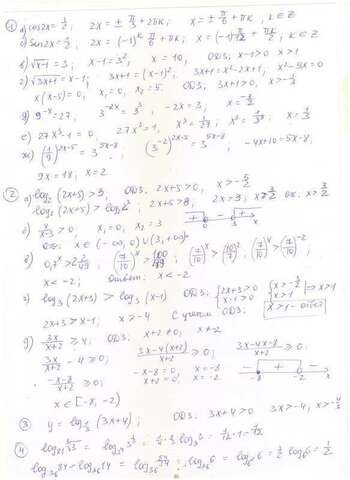 ① а) cos2x = 1/2, 2x = ± π/3 + 2πk, x = ± π/6 + πk, k∈Z
б) sin2x = 1/2, 2x = (-1)^k π/6 + πk; x = (-1)^k π/12 + πk/2, k∈Z
в) √x-1 = 3; x-1 = 3², x = 10, ОДЗ: x-1>0 x>1
г) √3x+1 = x-1; 3x+1 = (x-1)², 3x+1 = x²-2x+1, x²-5x=0
x(x-5)=0, x₁=0, x₂=5. ОДЗ: 3x+1>0, x>-1/3
д) 9^-x = 27; 3^-2x = 3³, -2x = 3; x = -3/2
е) 27x³-1=0; 27x³=1, x³=1/27; x³=1/3³; x=1/3
ж) (1/9)^2x-5 = 3^5x-8, (3^-2)^2x-5 = 3^5x-8; -4x+10=5x-8,
9x=18, x=2
② а) log₂(2x+5)>3, ОДЗ: 2x+5>0, x>-5/2
log₂(2x+5)>log₂2³; 2x+5>8; 2x>3; x>3/2 Отв: x>3/2
б) x/x-3 >0, x₁=0, x₂=3
Отв: x∈(-∞,0)∪(3,+∞)
в) 0,7^x > 2 2/49; (7/10)^x > 100/49; (7/10)^x > (10/7)², (7/10)^x > (7/10)^-2;
x<-2; Ответ: x<-2
г) log₃(2x+3) > log₃(x-1) ОДЗ: {2x+3>0 x-1>0 {x>-3/2 x>1 ⇒ x>1
2x+3>x-1; x>-4 С учетом ОДЗ: x>1
д) 3x/x+2 ≥ 4, ОДЗ: x+2≠0; x≠-2
3x/x+2 - 4≥0; 3x-4(x+2)/x+2 ≥0; 3x-4x-8/x+2 ≥0
-x-8/x+2 ≥0; -x-8=0; x=-8 x+2=0; x=-2
x∈[-8,-2)
③ y = log₁/₃(3x+4); ОДЗ: 3x+4>0 3x>-4, x>-4/3